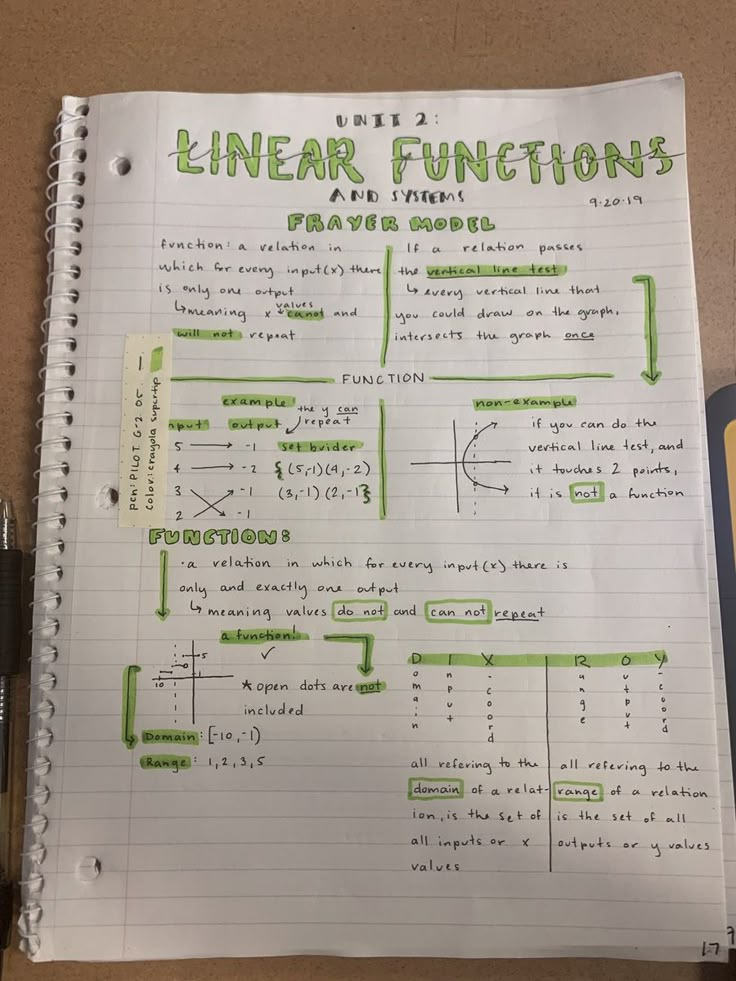 UNIT 2:
LINEAR FUNCTIONS
AND SYSTEMS
9-20-19
FRAYER MODEL
function: a relation in
which for every input(x) there
is only one output
↳meaning x values canot and
will not repeat
If a relation passes
the vertical line test
↳ every vertical line that
you could draw on the graph,
intersects the graph once
FUNCTION
pen: PILOT G-2 05
color: crayola supertip
example
the y can
repeat
nput output
set bvider
5 → -1
4 → -2
3 -1
2 -1
{ (5,-1)(4,-2)
(3,-1) (2,-1}
non-example
if you can do the
vertical line test, and
it touches 2 points,
it is not a function
FUNCTION:
·a relation in which for every input(x) there is
only and exactly one output
↳ meaning values do not and can not repeat
a function!
✓
5
10
1
* open dots are not
included
Domain: [-10,-1)
Range: 1,2,3,5
D I X R O Y
Domain
Input
X-coord
Range
Output
Y-coord
all refering to the
domain of a relat-
ion, is the set of
all inputs or x
values
all refering to the
range of a relation
is the set of all
outputs or y values
17